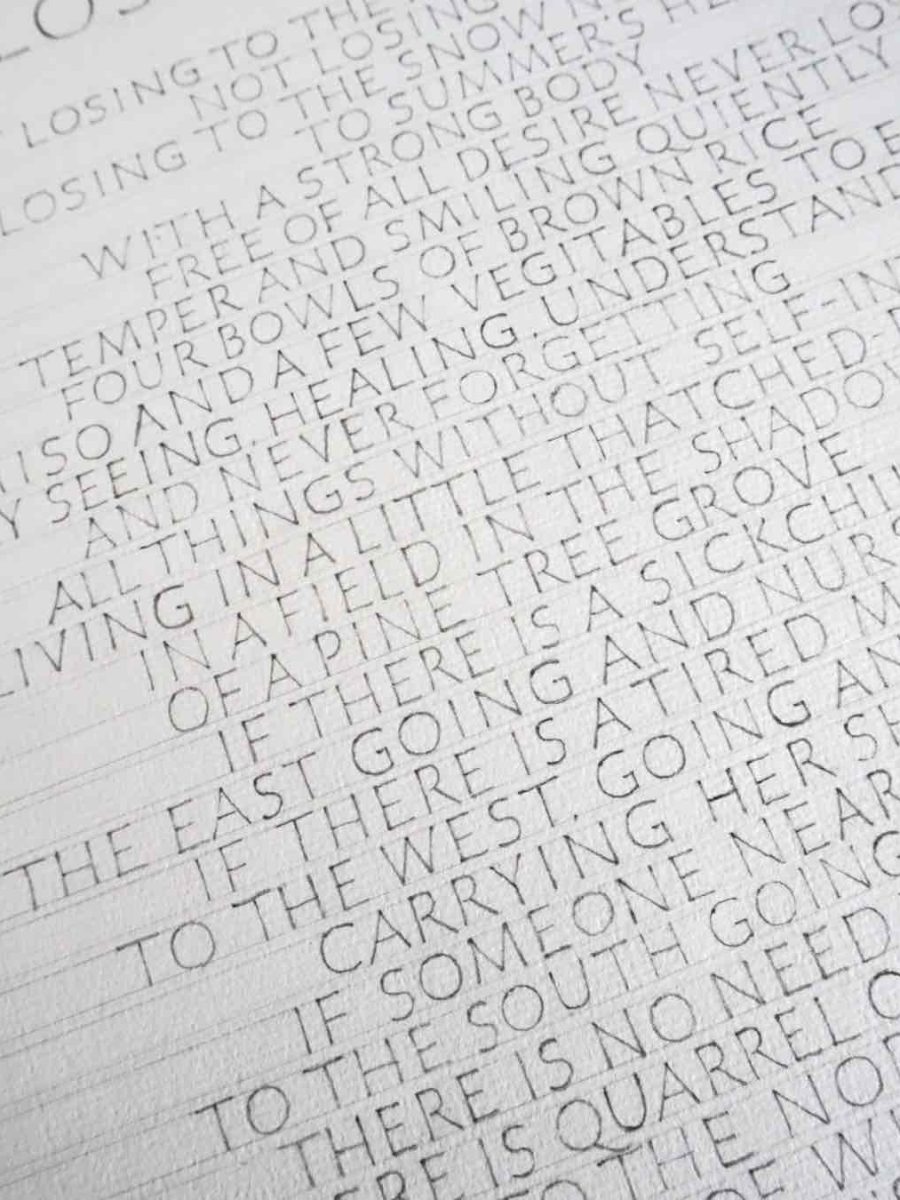 LOSING TO THE
NOT LOSING
LOSING TO THE SNOW
TO SUMMER'S
WITH A STRONG BODY
FREE OF ALL DESIRE NEVER
TEMPER AND SMILING QUIENTLY
FOUR BOWLS OF BROWN RICE
AND A FEW VEGITABLES TO
SEEING. HEALING. UNDERSTAND
AND NEVER FORGETTING
ALL THINGS WITHOUT SELF-IN
LIVING IN A LITTLE THATCHED-
IN A FIELD IN THE SHADOW
OF A PINE TREE GROVE
IF THERE IS A SICKCHIL
THE EAST GOING AND NURS
IF THERE IS A TIRED M
TO THE WEST. GOING AN
CARRYING HER SH
IF SOMEONE NEAR
TO THE SOUTH GOING
THERE IS NO NEED
IS QUARREL O
THE NOR